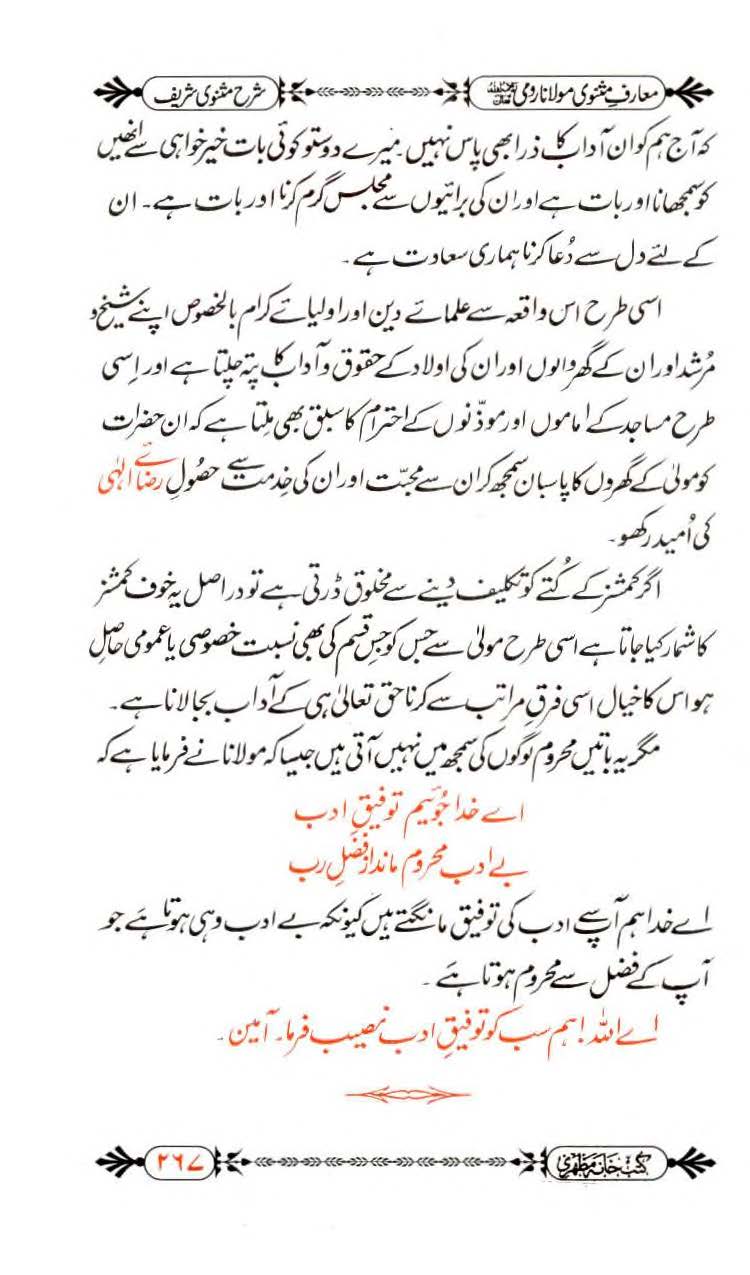 معارفِ مثنوی مولانا رومی رحمۃ اللہ تعالیٰ علیہ
شرح مثنوی شریف
کہ آج ہم کو ان آداب کا ذرا بھی پاس نہیں۔ میرے دوستو کوئی بات خیرخواہی سے انھیں
کو سمجھانا اور بات ہے اور ان کی برائیوں سے مجلس گرم کرنا اور بات ہے۔ ان
کے لئے دل سے دُعا کرنا ہماری سعادت ہے۔
اسی طرح اس واقعہ سے علمائے دین اور اولیائے کرام بالخصوص اپنے شیخ و
مُرشد اور ان کے گھر والوں اور ان کی اولاد کے حقوق و آداب کا پتہ چلتا ہے اور اِسی
طرح مساجد کے اماموں اور موذّنوں کے احترام کا سبق بھی مِلتا ہے کہ ان حضرات
کو مولیٰ کے گھروں کا پاسبان سمجھ کر ان سے محبّت اور ان کی خِدمت سے حصُولِ رضائے الٰہی
کی اُمید رکھو۔
اگر کمشنر کے کُتے کو تکلیف دینے سے مخلوق ڈرتی ہے تو در اصل یہ خوف کمشنر
کا شمار کیا جاتا ہے اسی طرح مولیٰ سے جس کو جِس قِسم کی بھی نسبت خصوصی یا عمومی حاصِل
ہو اس کا خیال اسی فرقِ مراتب سے کرنا حق تعالیٰ ہی کے آداب بجا لانا ہے۔
مگر یہ باتیں محروم لوگوں کی سمجھ میں نہیں آتی ہیں جیسا کہ مولانا نے فرمایا ہے کہ
اے خدا جُوئیم توفیقِ ادب
بے ادب محروم ماند از فضلِ رب
اے خدا ہم آپ سے ادب کی توفیق مانگتے ہیں کیونکہ بے ادب وہی ہوتا ہَے جو
آپ کے فضل سے محروم ہوتا ہَے۔
اے اللہ! ہم سب کو توفیقِ ادب نصیب فرما۔ آمین۔
کتب خانہ مظہری
۲۶۷